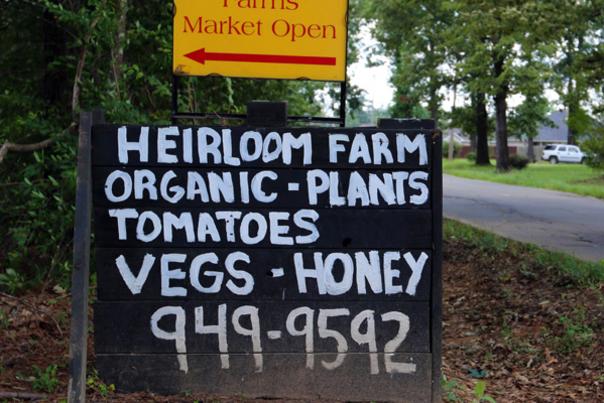 Farms
Market Open
HEIRLOOM FARM
ORGANIC - PLANTS
TOMATOES
VEGS - HONEY
949-9592